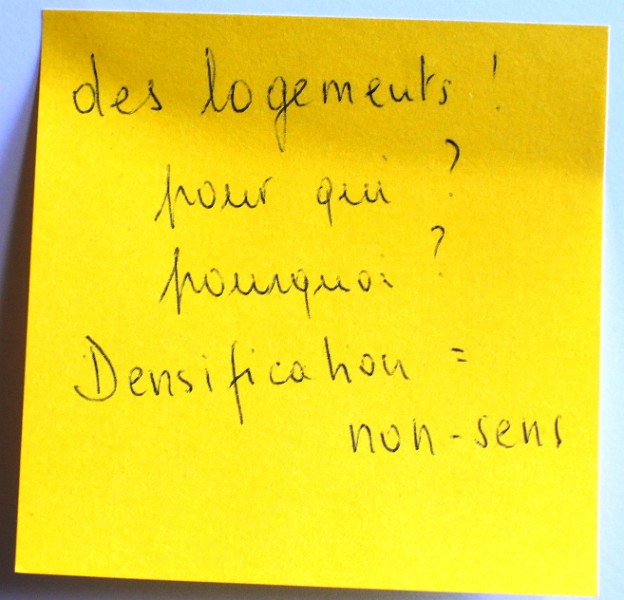 des logements !
pour qui ?
pourquoi ?
Densification =
non-sens